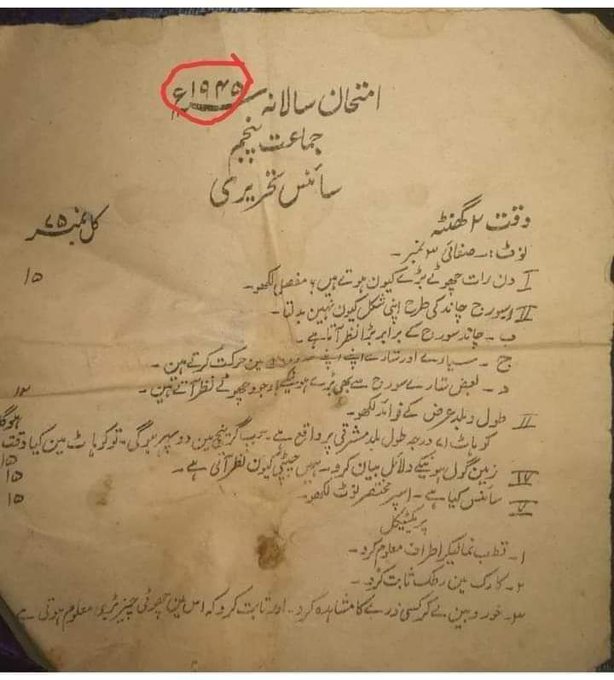 امتحان سالانہ ۱۹۴۵ء
جماعت پنجم
سائنس تحریری
وقت ۲ گھنٹہ کل نمبر ۷۵
نوٹ:۔ صفائی ۳ نمبر۔
I دن رات چھوٹے بڑے کیوں ہوتے ہیں؟ مفصل لکھو۔ ۱۵
II سورج چاند کی طرح اپنی شکل کیوں نہیں بدلتا۔
ب۔ چاند سورج کے برابر بڑا نظر آتا ہے۔
ج۔ سیارے اور ستارے اپنے اپنے میں حرکت کرتے ہیں۔
د۔ بعض ستارے سورج سے بھی بڑے ہونیکے باوجود چھوٹے نظر آتے ہیں۔ ۱۲
II طول و بلد عرض کے فوائد لکھو۔
کوہاٹ ۷۱ درجہ طول بلد مشرقی پر واقع ہے۔ جب گرینچ میں دوپہر ہوگی۔ تو کوہاٹ میں کیا وقت ہوگا ۱۵
IV زمین گول ہونیکے دلائل بیان کرو۔ ہمیں چپٹی کیوں نظر آتی ہے۔ ۱۵
V سائنس کیا ہے۔ اسپر مختصر نوٹ لکھو۔ ۱۵
پریکٹیکل
۱۔ قطب نما لیکر اطراف معلوم کرو۔
۲۔ کارک میں ثابت کرو۔
۳۔ خوردبین لے کر کسی ذرے کا مشاہدہ کرو۔ اور ثابت کرو کہ اس میں چھوٹی چیز بڑی معلوم ہوتی ہے